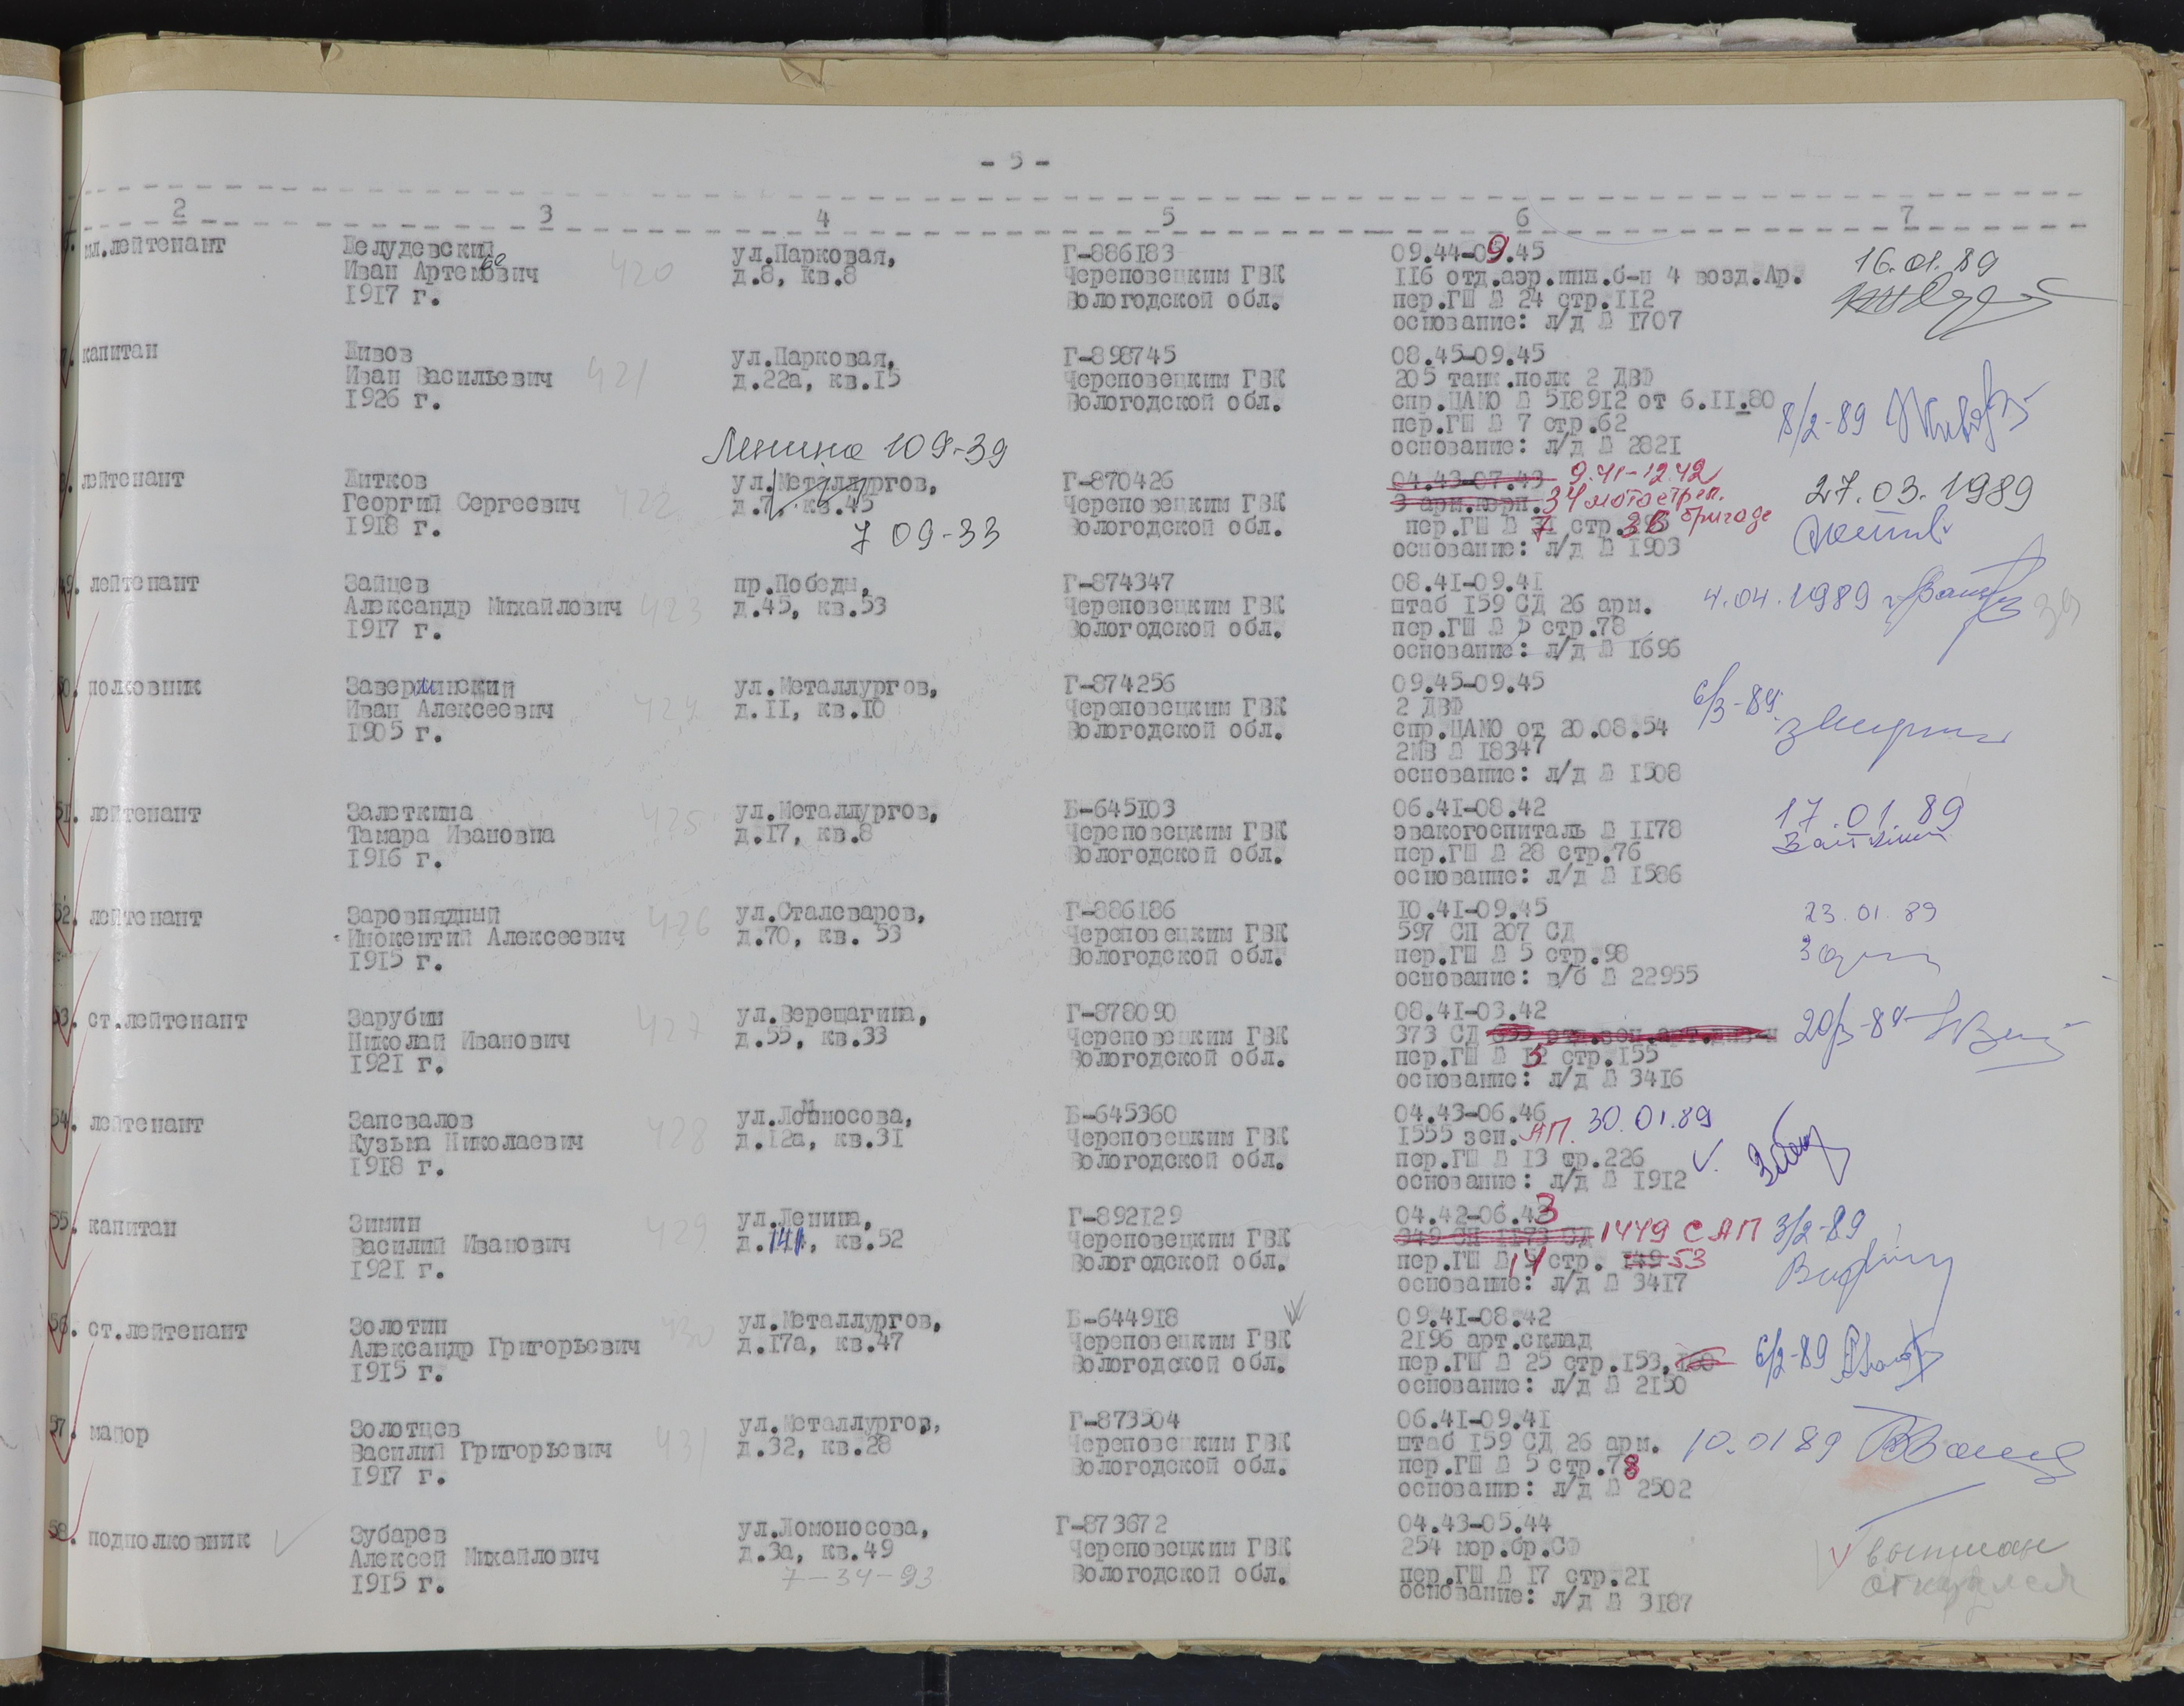 - 5 -
2 3 4 5 6 7
мл.лейтенант
Желудевский
Иван Артемович
1917 г.
420
ул.Парковая,
д.8, кв.8
Г-886183
Череповецким ГВК
Вологодской обл.
09.44-09.45
116 отд.аэр.инж.б-н 4 возд.Ар.
пер.ГШ № 24 стр.112
основание: л/д № 1707
16.01.89
капитан
Живов
Иван Васильевич
1926 г.
421
ул.Парковая,
д.22а, кв.15
Г-898745
Череповецким ГВК
Вологодской обл.
08.45-09.45
205 танк.полк 2 ДВФ
спр.ЦАМО № 518912 от 6.11.80
пер.ГШ № 7 стр.62
основание: л/д № 2821
8/2-89
лейтенант
Житков
Георгий Сергеевич
1918 г.
422
Ленина 109-39
ул.Металлургов,
д.7, кв.45
7 09-33
Г-870426
Череповецким ГВК
Вологодской обл.
04.43-07.43 9.41-12.42
3 арм.корп. 34 мотострел. бригаде
пер.ГШ № 7 стр.36
основание: л/д № 1903
27.03.1989
49. лейтенант
Зайцев
Александр Михайлович
1917 г.
423
пр.Победы,
д.45, кв.53
Г-874347
Череповецким ГВК
Вологодской обл.
08.41-09.41
штаб 159 СД 26 арм.
пер.ГШ № 5 стр.78
основание: л/д № 1696
4.04.1989
50. полковник
Завершинский
Иван Алексеевич
1905 г.
424
ул.Металлургов,
д.11, кв.10
Г-874256
Череповецким ГВК
Вологодской обл.
09.45-09.45
2 ДВФ
спр.ЦАМО от 20.08.54
2МВ № 18347
основание: л/д № 1508
6/3-89
51. лейтенант
Залеткина
Тамара Ивановна
1916 г.
425
ул.Металлургов,
д.17, кв.8
Б-645103
Череповецким ГВК
Вологодской обл.
06.41-08.42
эвакогоспиталь № 1178
пер.ГШ № 28 стр.76
основание: л/д № 1586
17.01.89
52. лейтенант
Заровнядный
Инокентий Алексеевич
1915 г.
426
ул.Сталеваров,
д.70, кв. 53
Г-886186
Череповецким ГВК
Вологодской обл.
10.41-09.45
597 СП 207 СД
пер.ГШ № 5 стр.98
основание: в/б № 22955
23.01.89
53. ст.лейтенант
Зарубин
Николай Иванович
1921 г.
427
ул.Верещагина,
д.55, кв.33
Г-878090
Череповецким ГВК
Вологодской обл.
08.41-03.42
373 СД
пер.ГШ № 5 стр.155
основание: л/д № 3416
20/3-89
54. лейтенант
Запевалов
Кузьма Николаевич
1918 г.
428
ул.Ломоносова,
д.12а, кв.31
Б-645360
Череповецким ГВК
Вологодской обл.
04.43-06.46
1555 зен. АП.
пер.ГШ № 13 стр.226
основание: л/д № 1912
30.01.89
55. капитан
Зимин
Василий Иванович
1921 г.
429
ул.Ленина,
д.141, кв.52
Г-892129
Череповецким ГВК
Вологодской обл.
04.42-06.43
1449 САП
пер.ГШ № 14 стр. 149 53
основание: л/д № 3417
3/2-89
56. ст.лейтенант
Золотин
Александр Григорьевич
1915 г.
430
ул.Металлургов,
д.17а, кв.47
Б-644918
Череповецким ГВК
Вологодской обл.
09.41-08.42
2196 арт.склад
пер.ГШ № 25 стр.153,
основание: л/д № 2150
6/2-89
57. майор
Золотцев
Василий Григорьевич
1917 г.
431
ул.Металлургов,
д.32, кв.28
Г-873504
Череповецким ГВК
Вологодской обл.
06.41-09.41
штаб 159 СД 26 арм.
пер.ГШ № 5 стр.78
основание: л/д № 2502
10.01 89
58. подполковник
Зубарев
Алексей Михайлович
1915 г.
ул.Ломоносова,
д.3а, кв.49
7-34-93
Г-873672
Череповецким ГВК
Вологодской обл.
04.43-05.44
254 мор.бр.СФ
пер.ГШ № 17 стр.21
основание: л/д № 3187
выписан